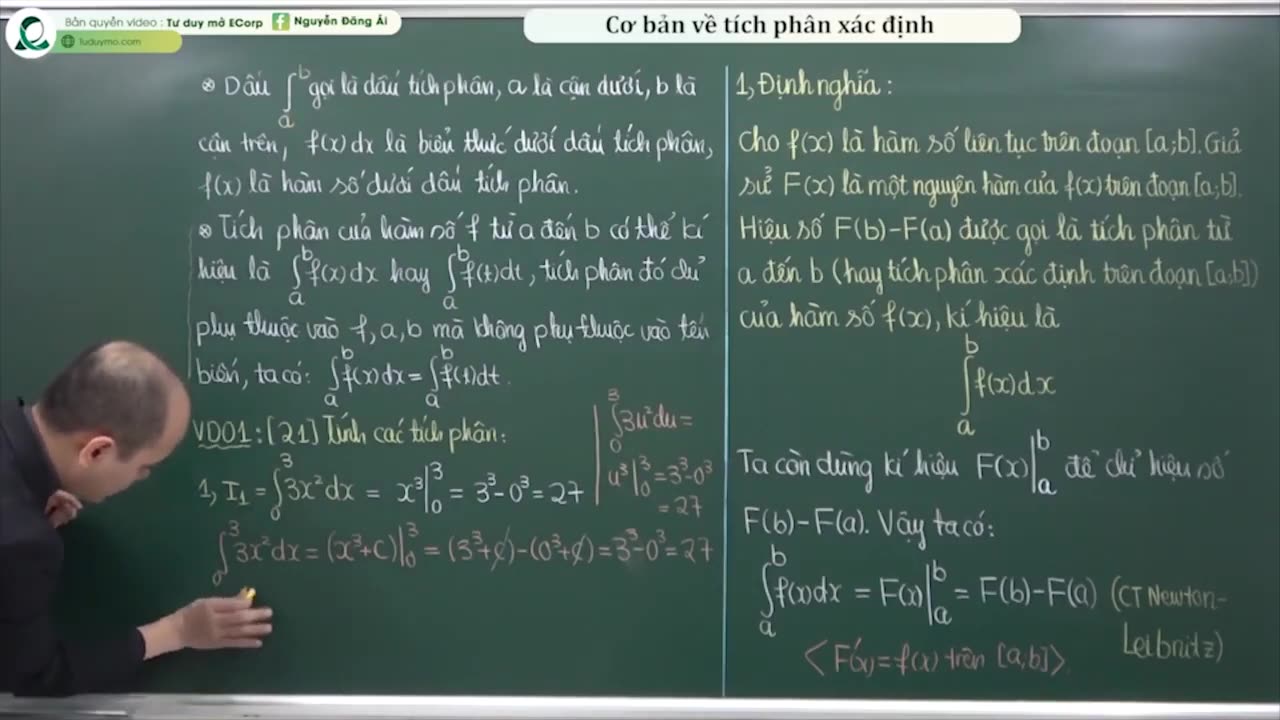 Bản quyền video : Tư duy mở ECorp Nguyễn Đăng Ái
tuduymo.com
Cơ bản về tích phân xác định
* Dấu ∫_a^b gọi là dấu tích phân, a là cận dưới, b là
cận trên, f(x)dx là biểu thức dưới dấu tích phân,
f(x) là hàm số dưới dấu tích phân.
* Tích phân của hàm số f từ a đến b có thể kí
hiệu là ∫_a^b f(x)dx hay ∫_a^b f(t)dt, tích phân đó chỉ
phụ thuộc vào f, a, b mà không phụ thuộc vào tên
biến, ta có: ∫_a^b f(x)dx = ∫_a^b f(t)dt.
VD01: [21] Tính các tích phân:
1, I₁ = ∫_0^3 3x²dx = x³|_0^3 = 3³-0³ = 27
∫_0^3 3u²du =
u³|_0^3 = 3³-0³
= 27
∫_0^3 3x²dx = (x³+C)|_0^3 = (3³+C)-(0³+C) = 3³-0³ = 27
1, Định nghĩa :
Cho f(x) là hàm số liên tục trên đoạn [a;b]. Giả
sử F(x) là một nguyên hàm của f(x) trên đoạn [a;b].
Hiệu số F(b)-F(a) được gọi là tích phân từ
a đến b (hay tích phân xác định trên đoạn [a;b])
của hàm số f(x), kí hiệu là
∫_a^b f(x)dx
Ta còn dùng kí hiệu F(x)|_a^b để chỉ hiệu số
F(b)-F(a). Vậy ta có:
∫_a^b f(x)dx = F(x)|_a^b = F(b)-F(a) (CT Newton-
Leibnitz)
<F'(x)=f(x) trên [a,b]>